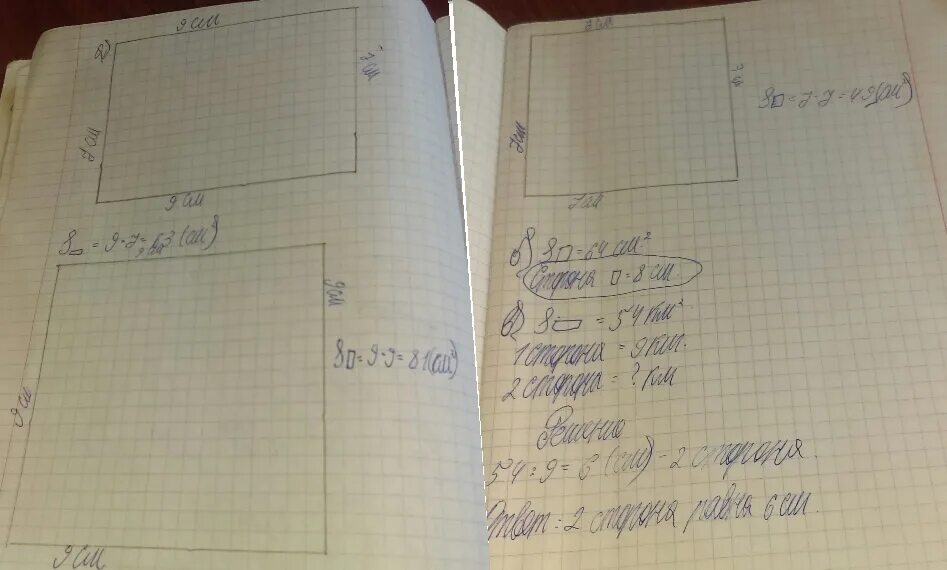 9 см
2)
7 см
7 см
9 см
S▭ = 9·7 = 63 (см²)
9 см
9 см
9 см
S□ = 9·9 = 81 (см²)
9 см
7 см
7 см
7 см
S□ = 7·7 = 49 (см²)
7 см
б) S□ = 64 см²
Сторона □ = 8 см.
в) S▭ = 54 км²
1 сторона = 9 км.
2 сторона = ? км
Решение
54 : 9 = 6 (см) - 2 сторона.
Ответ: 2 сторона равна 6 см.